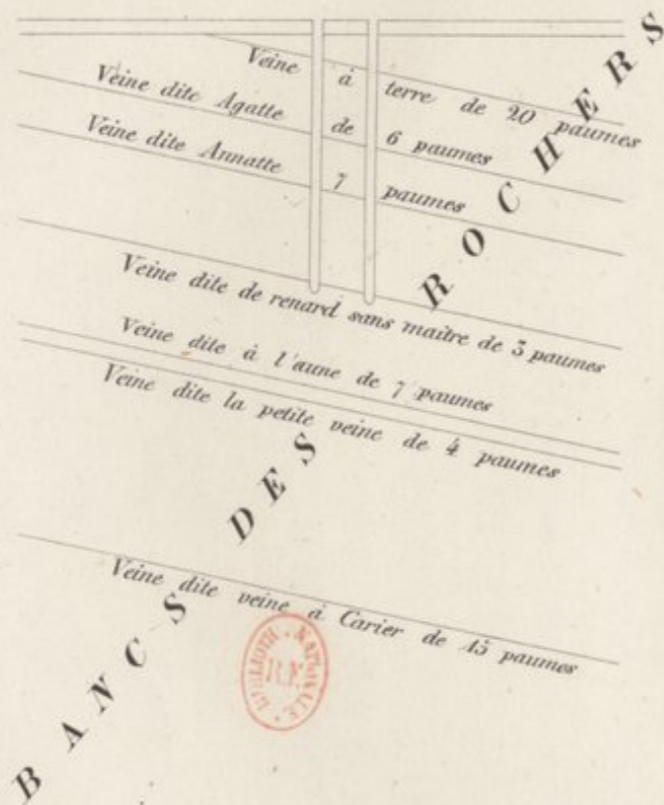 Veine à terre de 20 paumes
Veine dite Agatte de 6 paumes
Veine dite Annatte 7 paumes
Veine dite de renard sans maître de 3 paumes
Veine dite à l'aune de 7 paumes
Veine dite la petite veine de 4 paumes
Veine dite veine à Carier de 15 paumes
BANCS DES ROCHERS
BIBLIOTH. NATIONALE
R.F.